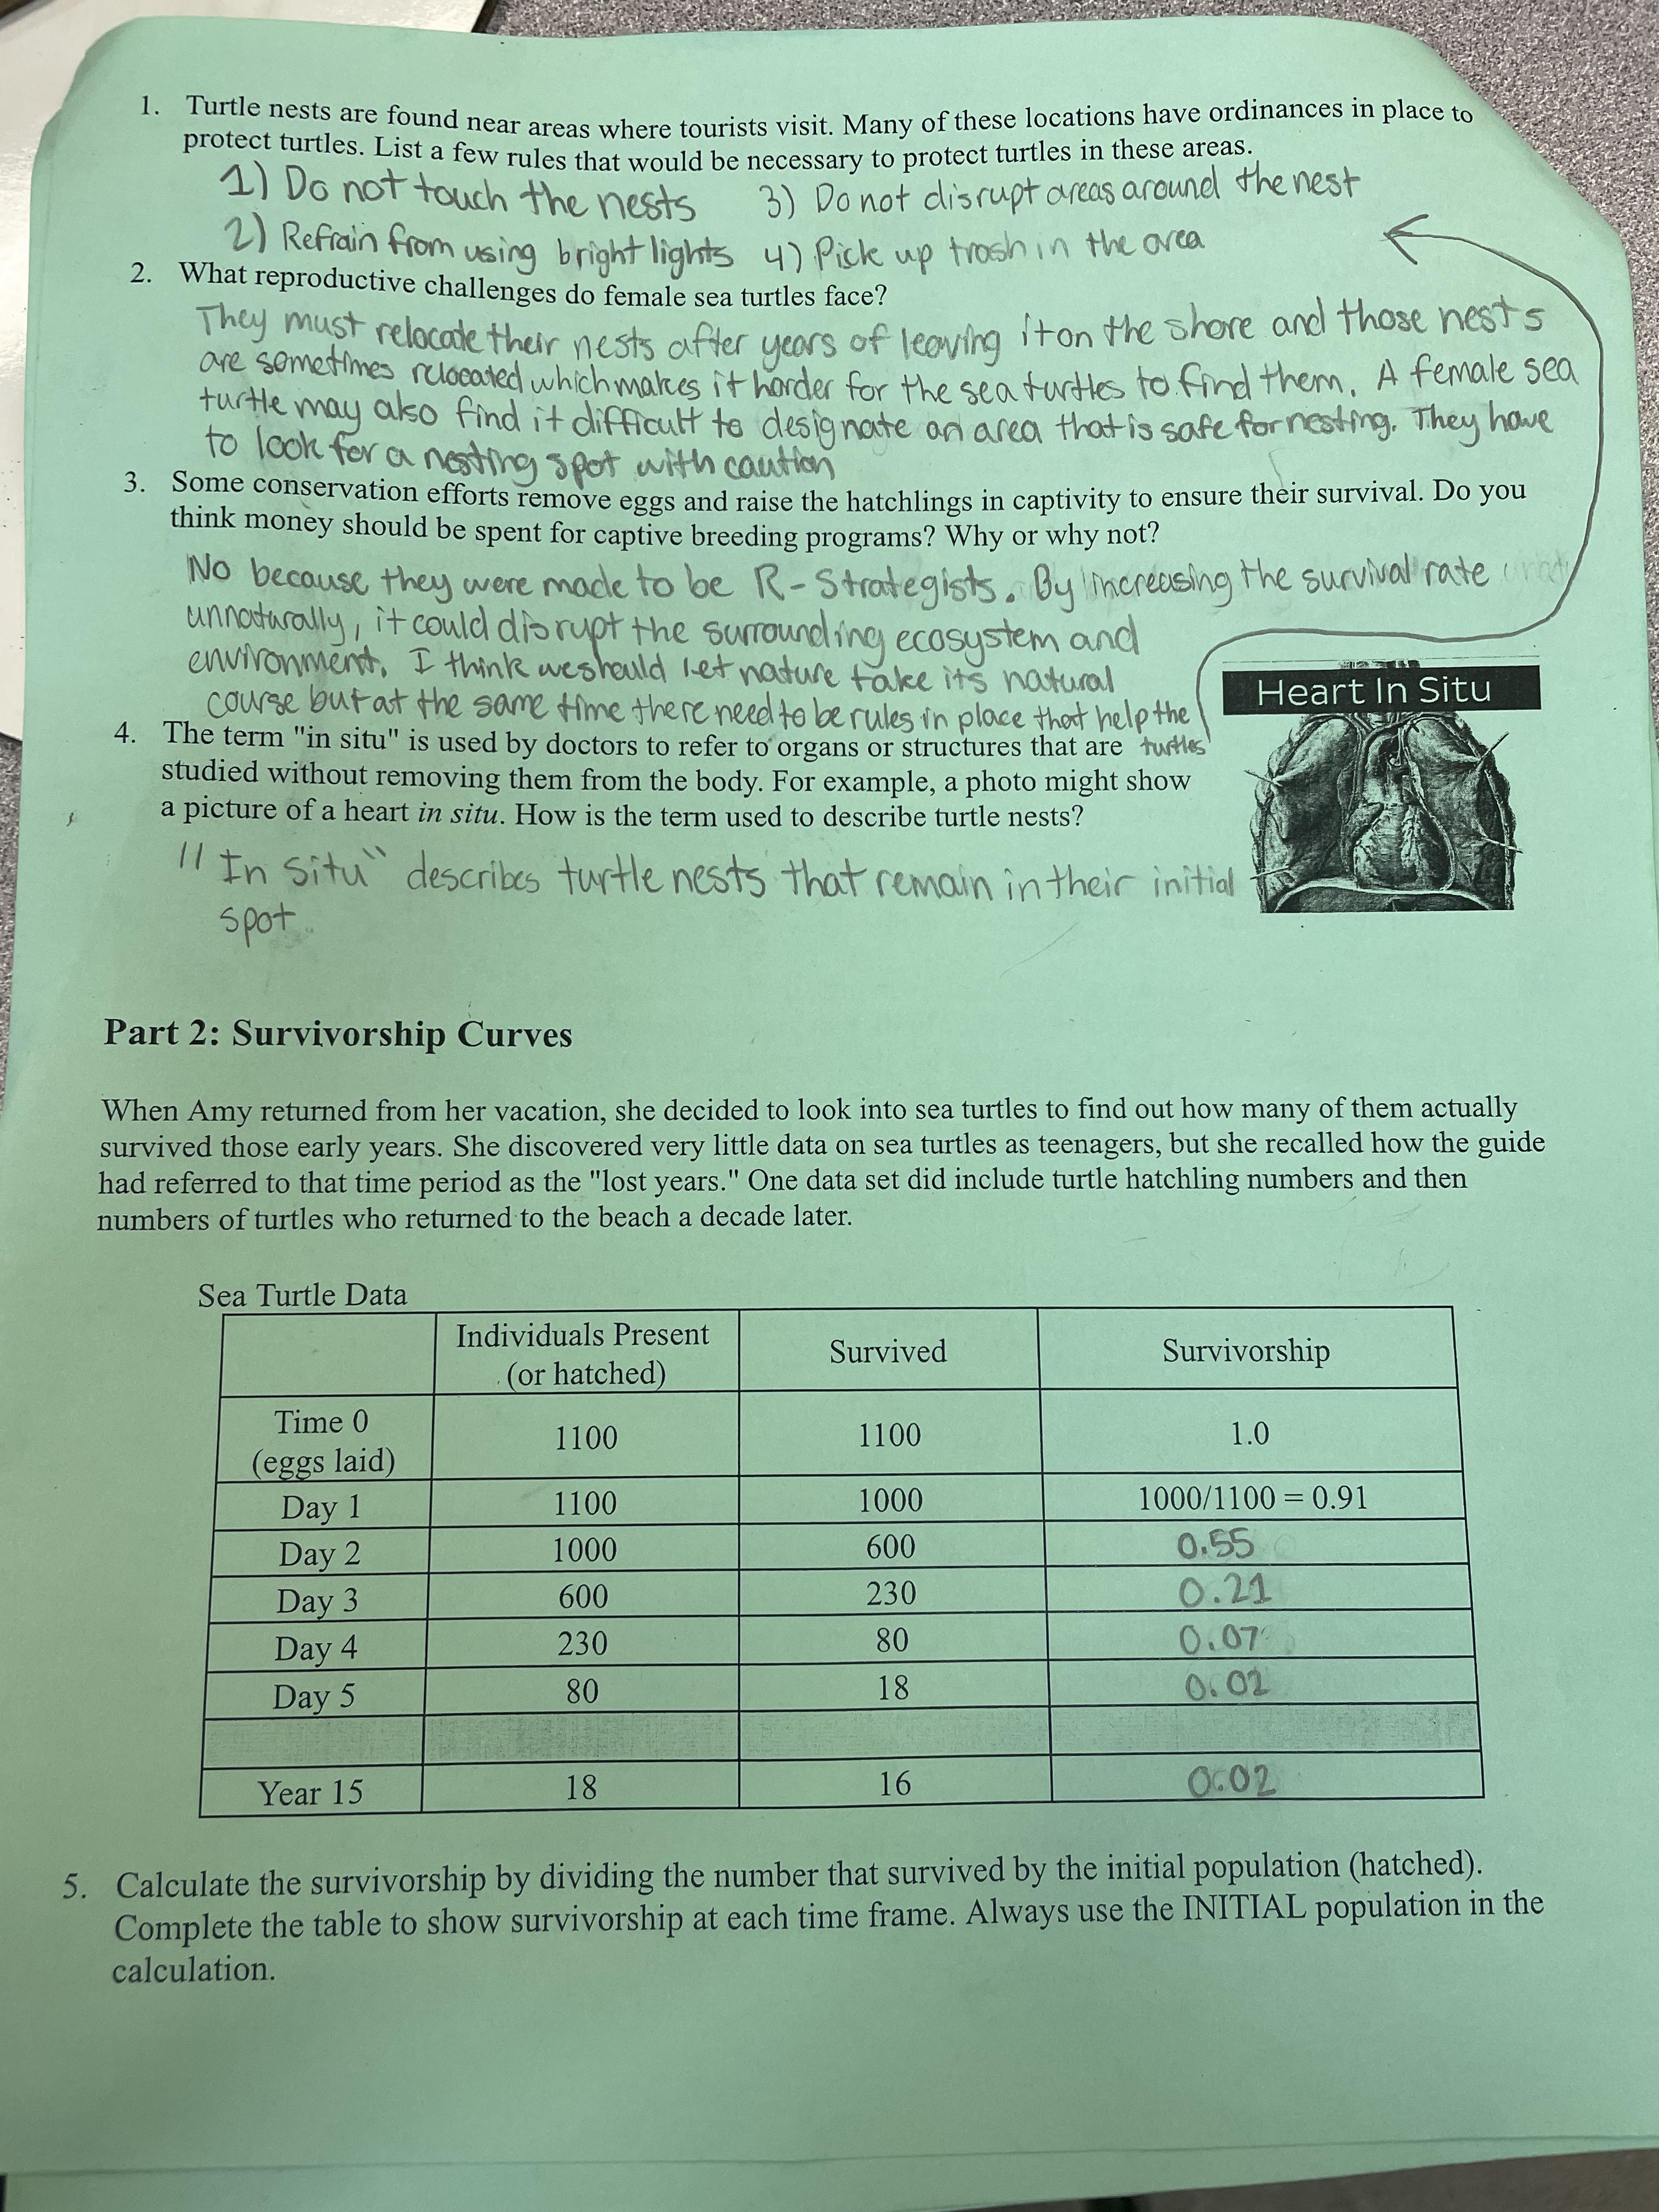 1. Turtle nests are found near areas where tourists visit. Many of these locations have ordinances in place to
protect turtles. List a few rules that would be necessary to protect turtles in these areas.
1) Do not touch the nests 3) Do not disrupt areas around the nest
2) Refrain from using bright lights 4) Pick up trash in the area
2. What reproductive challenges do female sea turtles face?
They must relocate their nests after years of leaving it on the shore and those nests
are sometimes relocated which makes it harder for the sea turtles to find them. A female sea
turtle may also find it difficult to designate an area that is safe for nesting. They have
to look for a nesting spot with caution
3. Some conservation efforts remove eggs and raise the hatchlings in captivity to ensure their survival. Do you
think money should be spent for captive breeding programs? Why or why not?
No because they were made to be R-Strategists. By increasing the survival rate
unnaturally, it could disrupt the surrounding ecosystem and
environment. I think we should let nature take its natural
course but at the same time there need to be rules in place that help the
turtles
4. The term "in situ" is used by doctors to refer to organs or structures that are
studied without removing them from the body. For example, a photo might show
a picture of a heart in situ. How is the term used to describe turtle nests?
Heart In Situ
"In situ" describes turtle nests that remain in their initial
spot.
Part 2: Survivorship Curves
When Amy returned from her vacation, she decided to look into sea turtles to find out how many of them actually
survived those early years. She discovered very little data on sea turtles as teenagers, but she recalled how the guide
had referred to that time period as the "lost years." One data set did include turtle hatchling numbers and then
numbers of turtles who returned to the beach a decade later.
Sea Turtle Data
Individuals Present (or hatched) Survived Survivorship
Time 0 (eggs laid) 1100 1100 1.0
Day 1 1100 1000 1000/1100 = 0.91
Day 2 1000 600 0.55
Day 3 600 230 0.21
Day 4 230 80 0.07
Day 5 80 18 0.02
Year 15 18 16 0.02
5. Calculate the survivorship by dividing the number that survived by the initial population (hatched).
Complete the table to show survivorship at each time frame. Always use the INITIAL population in the
calculation.